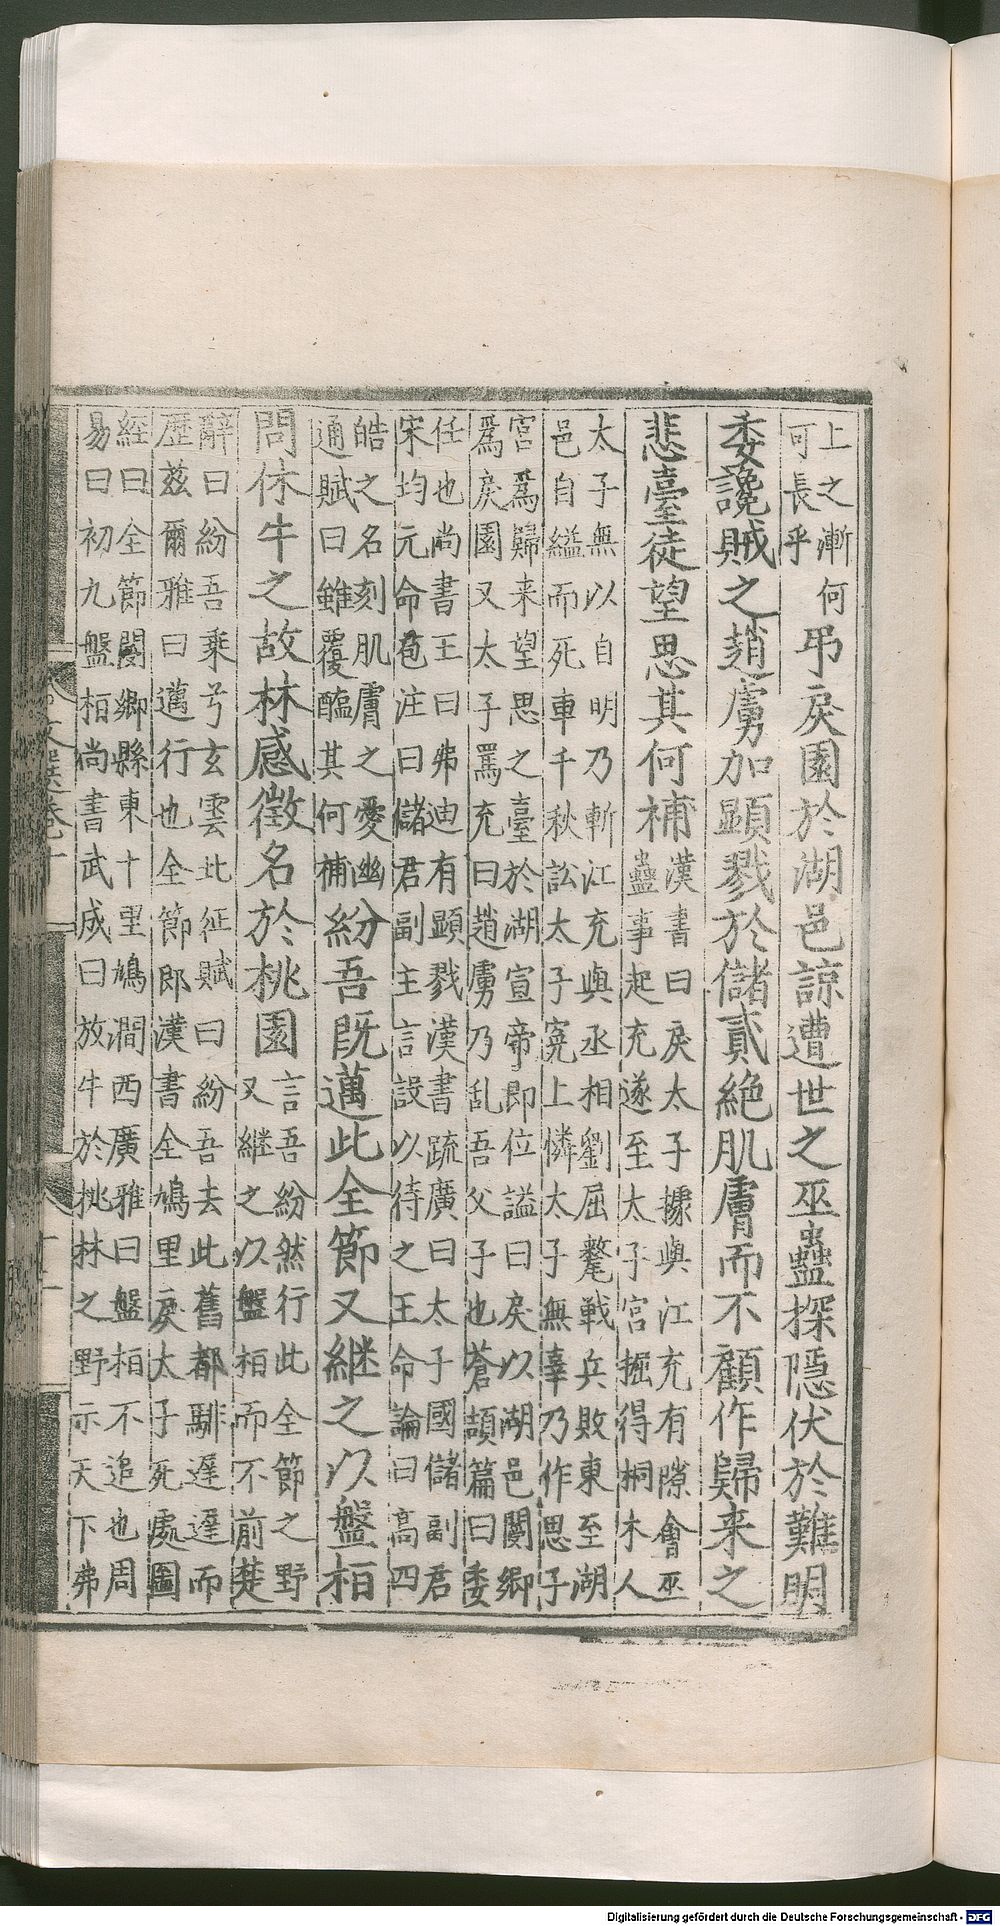 上之漸何
可長乎
弔戾園於湖邑諒遭世之巫蠱探隱伏於難明
委讒賊之趙虜加顯戮於儲貳絶肌膚而不顧作歸来之
悲臺徒望思其何補
漢書曰戾太子據與江充有隙會巫
蠱事起充遂至太子宮掘得桐木人
太子無以自明乃斬江充與丞相劉屈氂戰兵敗東至湖
邑自縊而死車千秋訟太子寃上憐太子無辜乃作思子
宮爲歸来望思之臺於湖宣帝即位謚曰戾以湖邑閿鄉
爲戾園又太子罵充曰趙虜乃乱吾父子也蒼頡篇曰委
任也尚書王曰弗迪有顯戮漢書疏廣曰太子國儲副君
宋均元命苞注曰儲君副主言設以待之王命論曰高四
皓之名刻肌膚之愛幽
通賦曰雖覆醢其何補
紛吾既邁此全節又継之以盤桓
問休牛之故林感徵名於桃園
言吾紛然行此全節之野
又継之以盤桓而不前楚
辭曰紛吾乗兮玄雲北征賦曰紛吾去此舊都騑遲遲而
歴兹爾雅曰邁行也全節郎漢書全鳩里戾太子死處圖
經曰全節閿鄉縣東十里鳩澗西廣雅曰盤桓不追也周
易曰初九盤桓尚書武成曰放牛於桃林之野示天下弗
文選卷十
十一
Digitalisierung gefördert durch die Deutsche Forschungsgemeinschaft - DFG